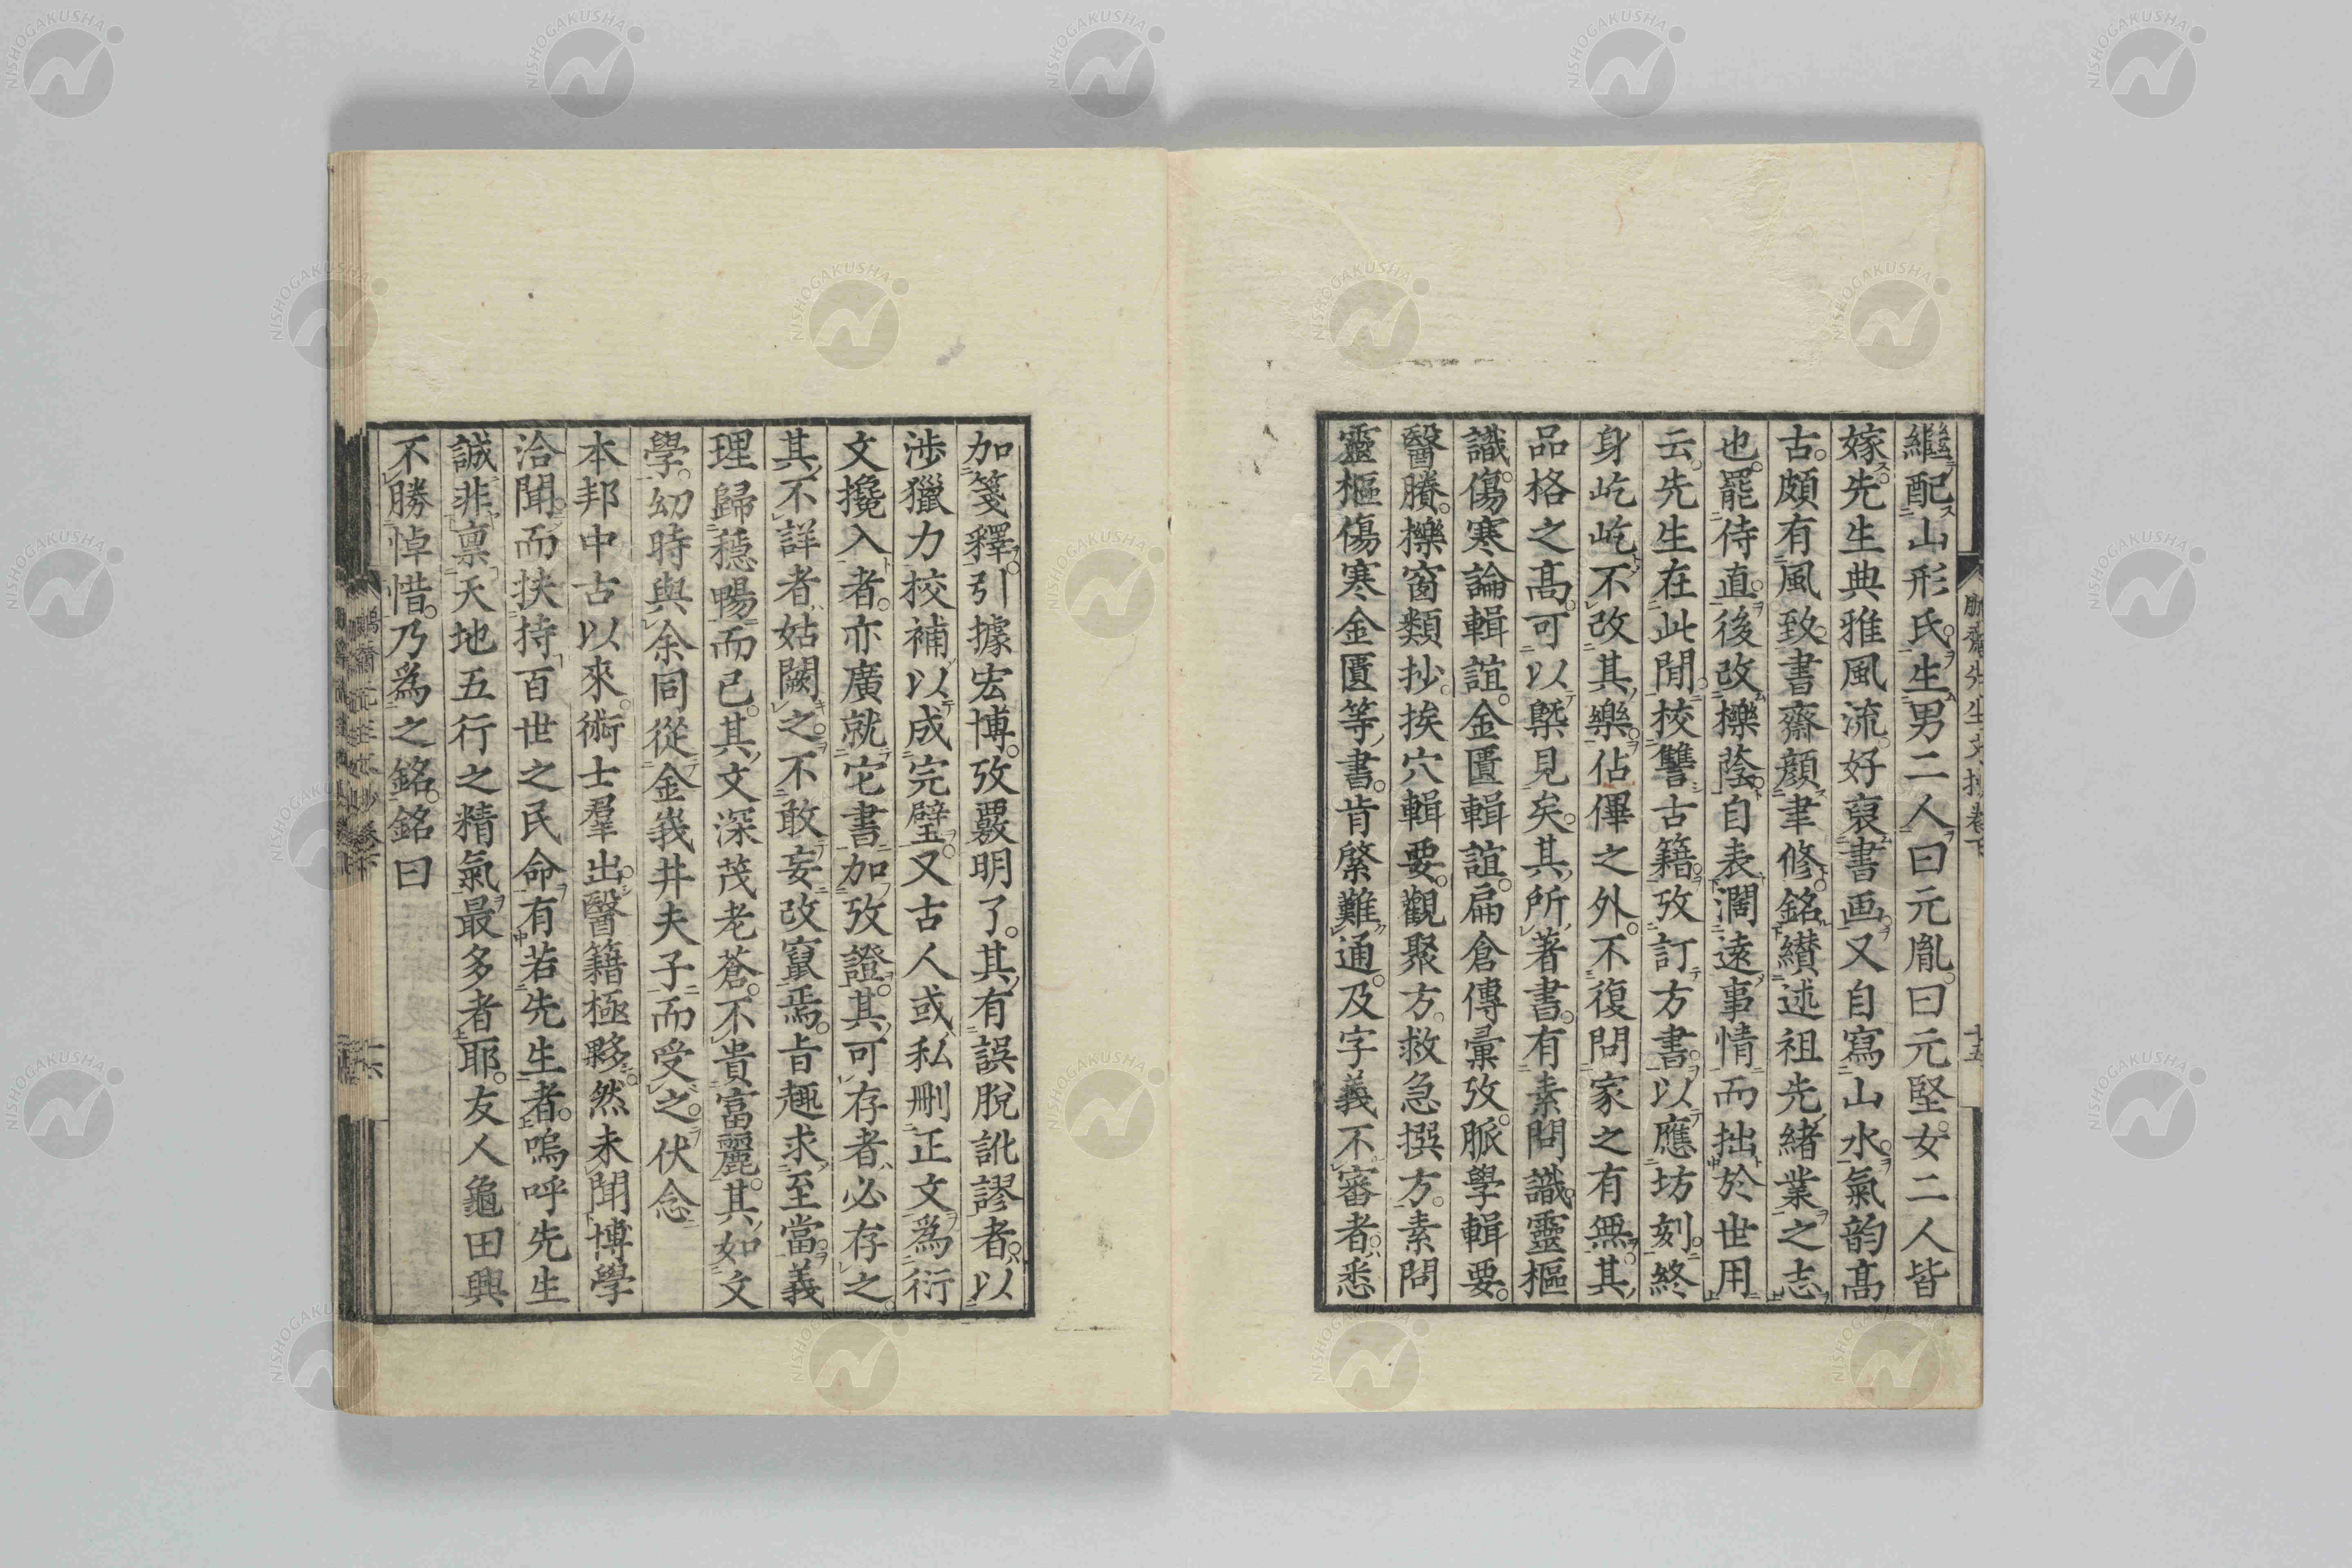 繼配山形氏。生男二人。曰元胤。曰元堅。女二人皆
嫁。先生典雅風流。好裒書画。又自寫山水。氣韵高
古。頗有風致。書齋顏聿修。銘纉述祖先緒業之志
也。罷侍直。後改櫟蔭。自表濶遠事情而拙於世用
云。先生在此間。挍讐古籍。攷訂方書。以應坊刻。終
身屹屹不改其樂。佔俾之外。不復問家之有無。其
品格之高。可以槩見矣。其所著書。有素問識。靈樞
識。傷寒論輯誼。金匱輯誼。扁倉傳彙攷。脈學輯要。
醫賸。櫟窗類抄。挨穴輯要。觀聚方。救急撰方。素問
靈樞傷寒金匱等書。肯綮難通。及字義不審者。悉
加箋釋。引據宏博。攷覈明了。其有誤脫訛謬者。以
涉獵力挍補以成完璧。又古人或私刪正文爲衍
文攙入者。亦廣就它書加攷證。其可存者必存之。
其不詳者姑闕之。不敢妄改竄焉。旨趣求至當。義
理歸穩暢而已。其文深茂老蒼。不貴富麗。其如文
學。幼時與余同從金峩井夫子而受之。伏念
本邦中古以來。術士羣出。醫籍極夥。然未聞博學
洽聞。而挟持百世之民命。有若先生者。嗚呼先生
誠非禀天地五行之精氣最多者耶。友人龜田興
不勝悼惜。乃爲之銘。銘曰